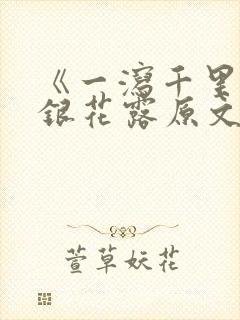 《一泻千里
银花露原文
萱草妖花